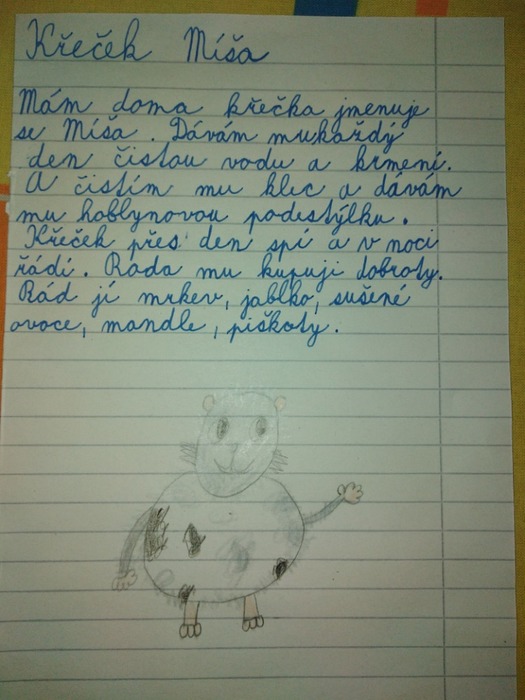 Křeček Míša
Mám doma křečka jmenuje
se Míša. Dávám mukaždý
den čistou vodu a krmení.
A čistím mu klec a dávám
mu hoblynovou podestýlku.
Křeček přes den spí a v noci
řádí. Rada mu kupuji dobroty.
Rád jí mrkev, jablko, sušené
ovoce, mandle, piškoty.